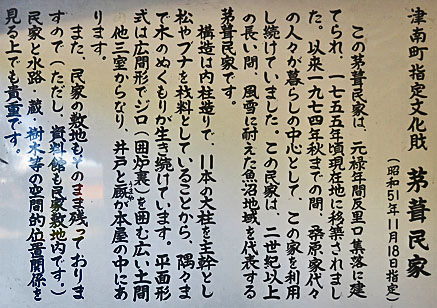 津南町指定文化財 茅葺民家
(昭和51年11月18日指定)
この茅葺民家は、元禄年間反里口集落に建
てられ、一七五五年頃現在地に移築されまし
た。以来一九七四年秋までの間、桑原家代々
の人々が暮らしの中心として、この家を利用
し続けていました。この民家は、二世紀以上
の長い間、風雪に耐えた魚沼地域を代表する
茅葺民家です。
構造は内柱造りで、11本の大柱を主幹とし
松やブナを材料としていることから、隅々ま
で木のぬくもりが生き続けています。平面形
式は広間形でジロ(囲炉裏)を囲む広い土間
他三室からなり、井戸と厩が本屋の中にあ
うまや
ります。
また、民家の敷地もそのまま残っておりま
すので(ただし、資料館も民家敷地内です。)
民家と水路・蔵・樹木等の空間的位置関係を
見る上でも貴重です。